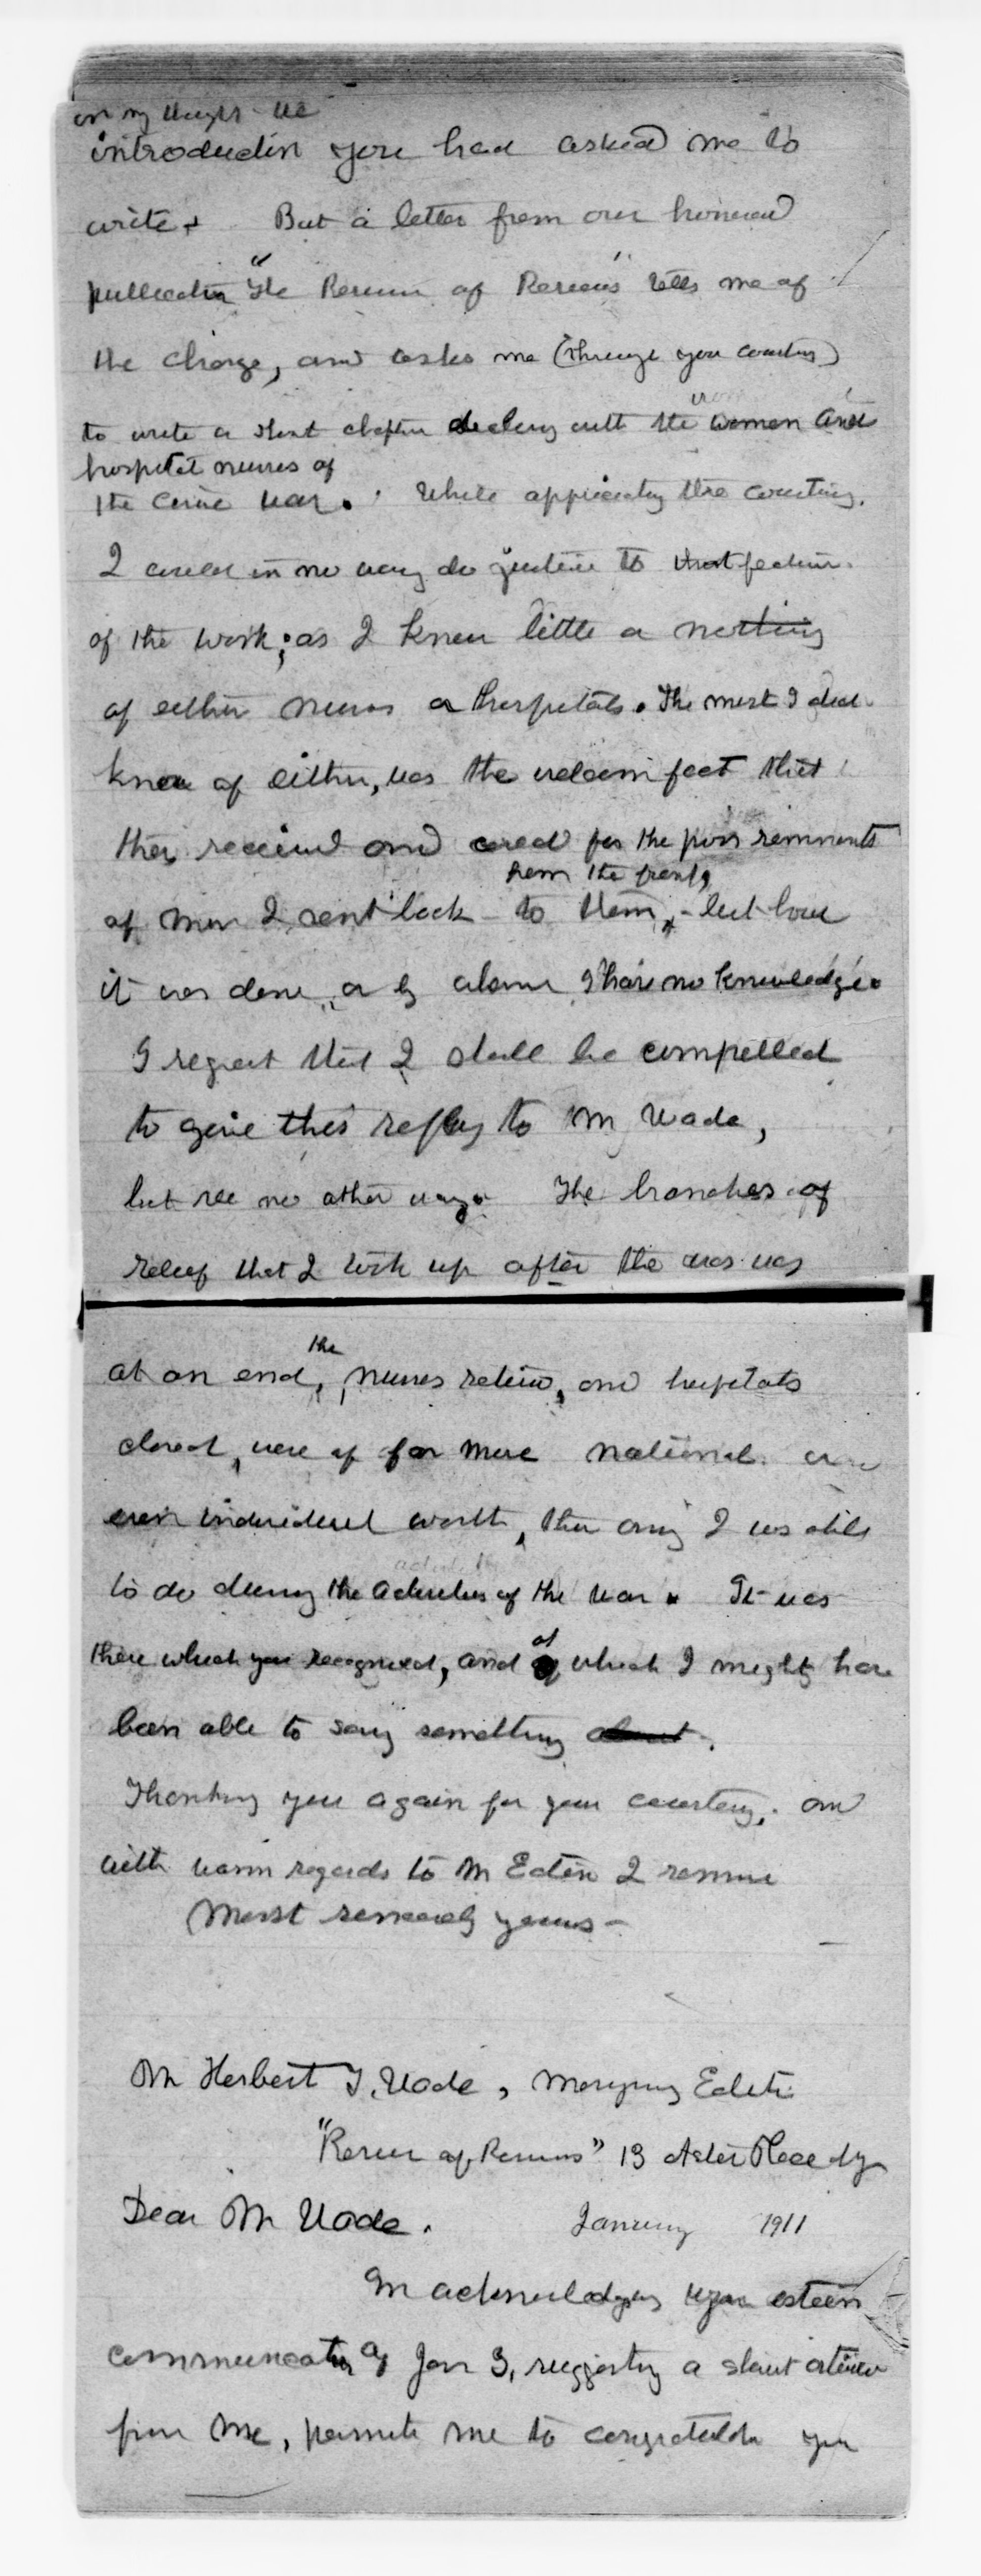 in my thought the
introduction you had asked me to
write. But a letter from our honored
publication "The Review of Reviews" tells me of
the change, and asks me (through your courtesy)
to write a short chapter dealing with the women and
hospital nurses of
the civil war. While appreciating the courtesy,
I could in no way do justice to that feature
of the work; as I knew little or nothing
of either nurses or hospitals. The most I did
know of either, was the welcome fact that
they received and cared for the poor remnants
from the front,
of men I sent back to them, - but how
it was done, or by whom I have no knowledge.
I regret that I shall be compelled
to give this reply to Mr Wade,
but see no other way. The branches of
relief that I took up after the war was
at an end, the nurses retired, and hospitals
closed, were of far more national and
even individual worth, than any I was able
to do during the activities of the war. It was
these which you recognized, and of which I might have
been able to say something about.
Thanking you again for your courtesy, and
with warm regards to Mr Eaton I remain
Most sincerely yours -
Mr Herbert T. Wade, Managing Editor
"Review of Reviews" 13 Astor Place Ny
Dear Mr Wade. January 1911
In acknowledging your esteem
communication of Jan 3, suggesting a short article
from me, permit me to congratulate you